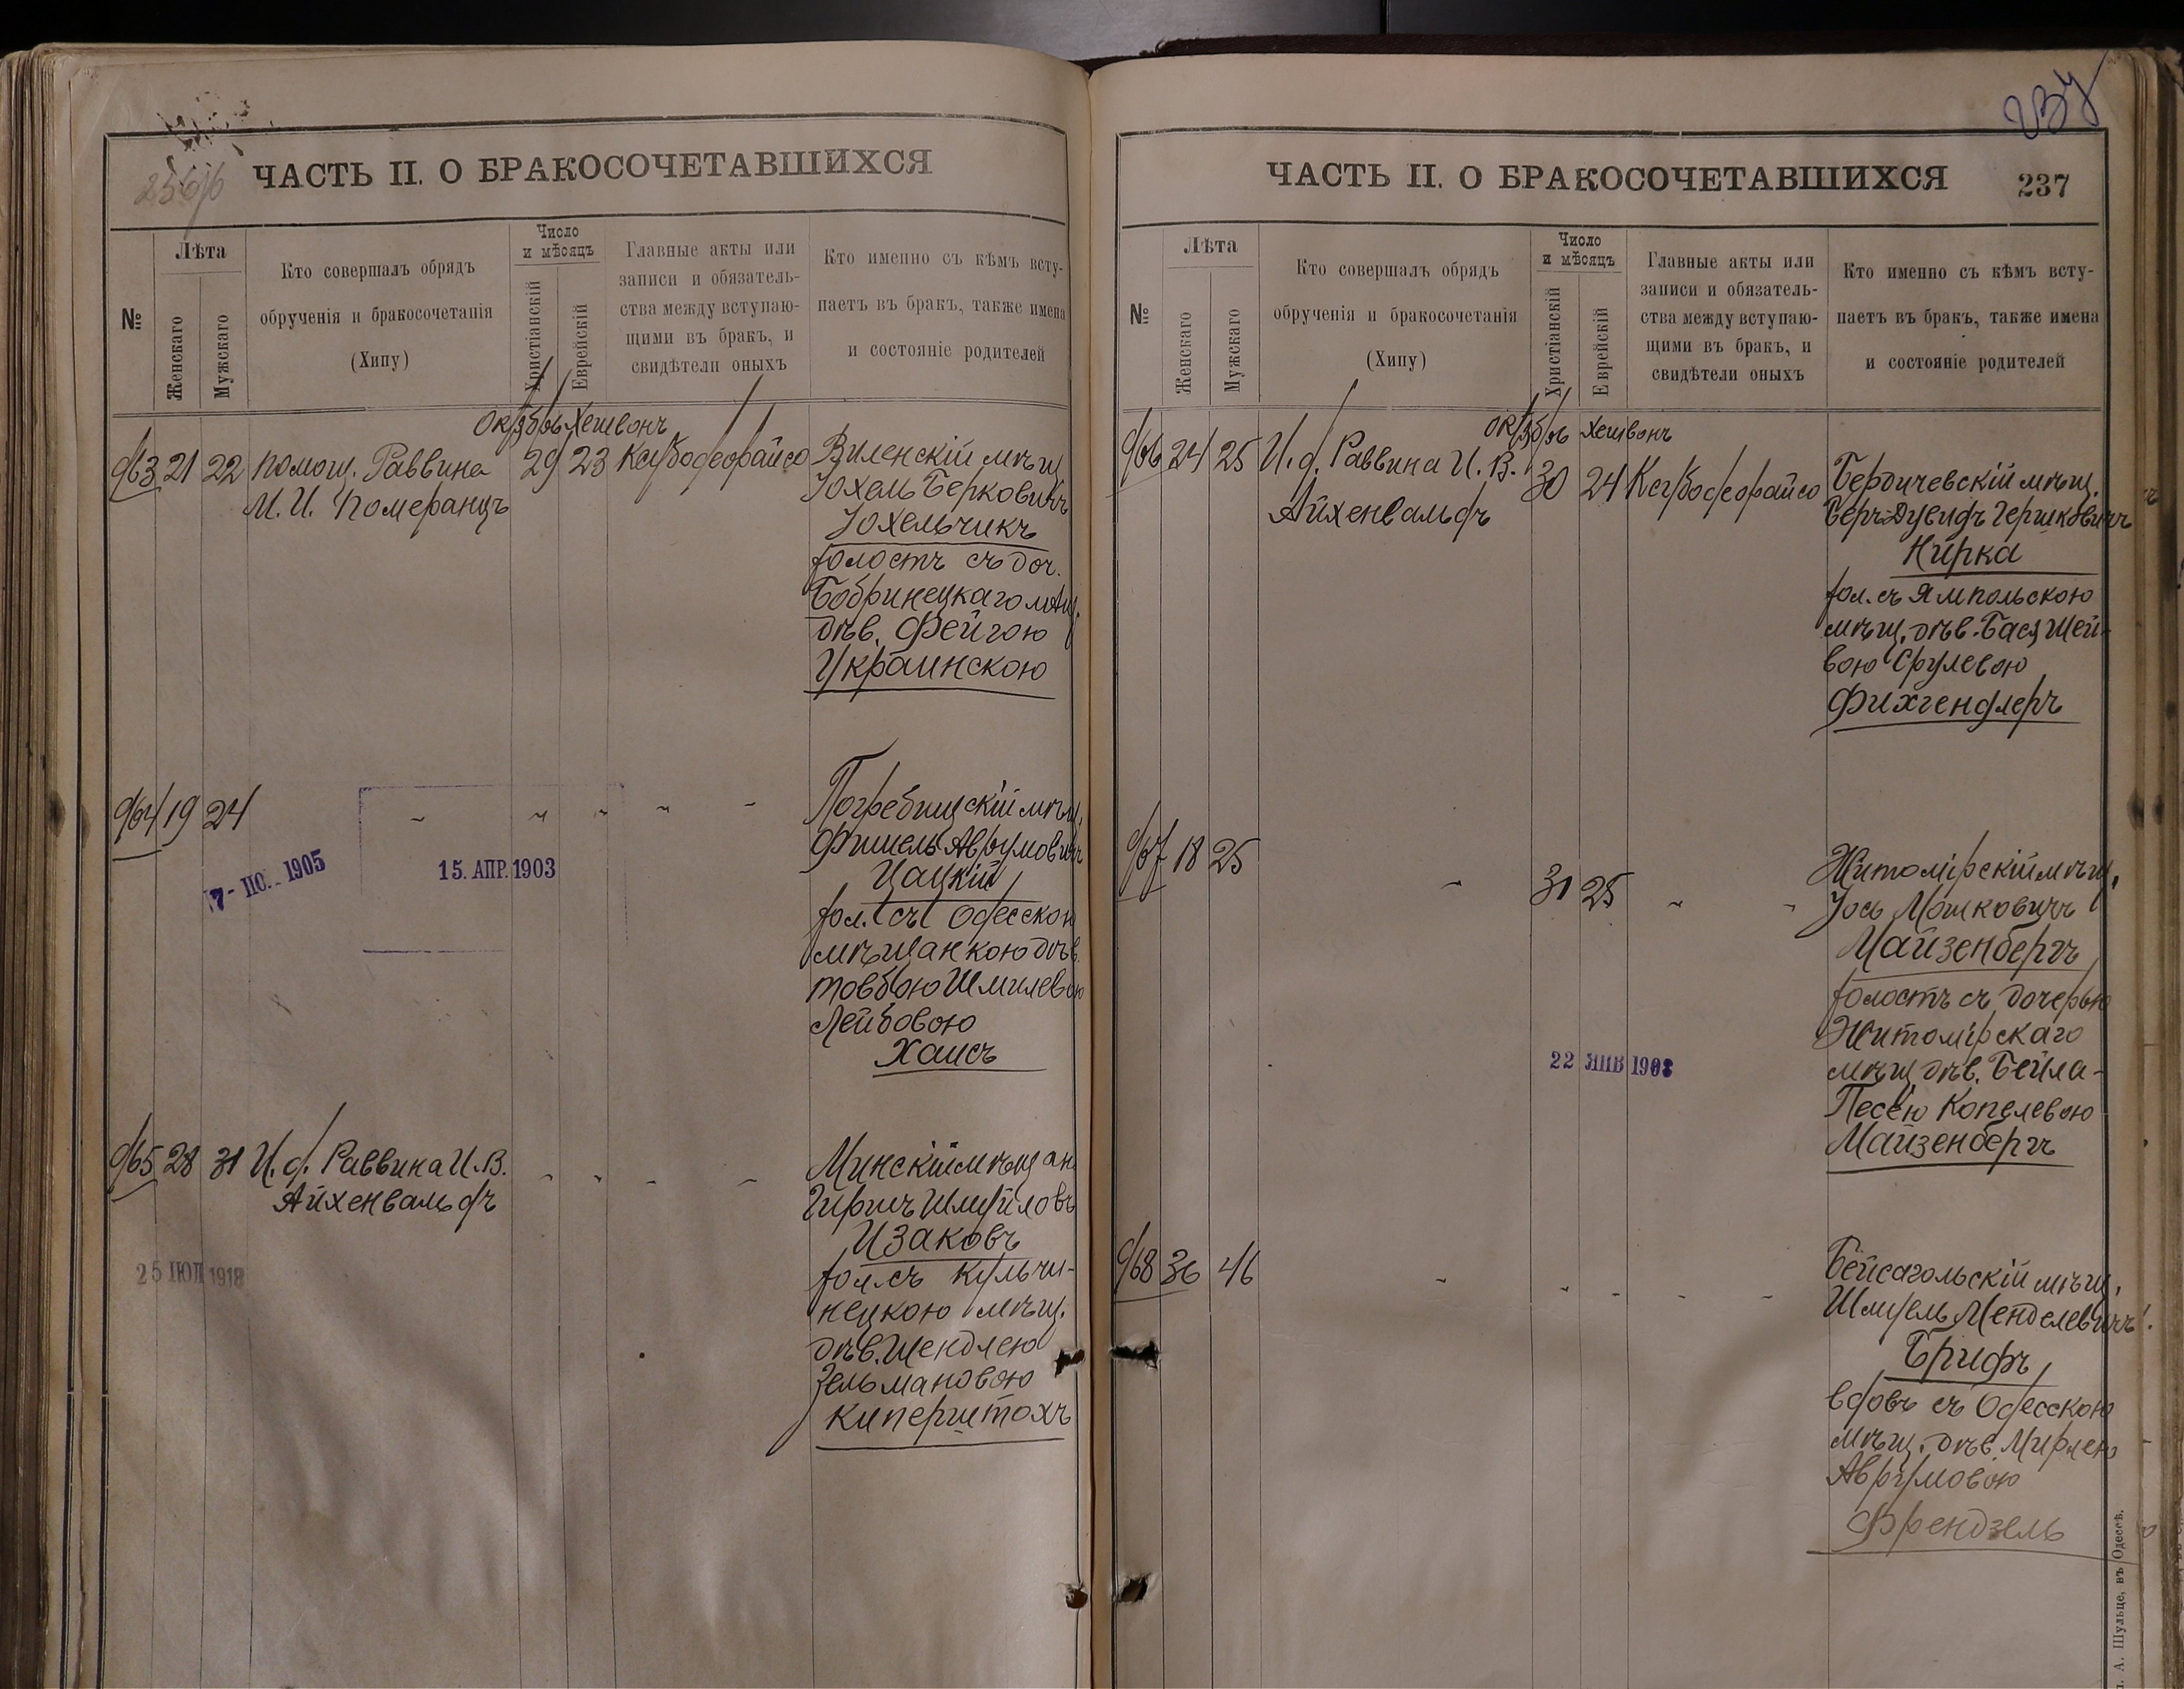 ЧАСТЬ II. О БРАКОСОЧЕТАВШИХСЯ
№
Лѣта
Женскаго
Мужскаго
Кто совершалъ обрядъ
обрученія и бракосочетанія
(Хипу)
Число
и мѣсяцъ
Христіанскій
Еврейскій
Главные акты или
записи и обязатель-
ства между вступаю-
щими въ бракъ, и
свидѣтели оныхъ
Кто именно съ кѣмъ всту-
паетъ въ бракъ, также имена
и состояніе родителей
Октябрь Хешвонъ
963 21 22 помощ. Раввина 29 23 Ксубодеорайсо Виленскій мѣщ
М. И. Померанцъ Іохель Берковичъ
Іохельчикъ
холостъ съ доч.
Бобринецкаго мѣщ.
дѣв. Фейгою
Украинскою
964 19 24 Погребищскій мѣщ.
Фишель Аврумовичъ
Цацкій
хол. съ Одесскою
мѣщанкою дѣв.
Товбою Шмилевою
Лейбовою
Хаисъ
7- 1905
15. АПР. 1903
965 28 31 И. д. Раввина И. В. Минскій мѣщан
Айхенвальдъ Гиршъ Шмуйловъ
Изаковъ
хол. съ Кульчи-
нецкою мѣщ.
дѣв. Шендлею
Зельмановою
Киперштохъ
25 ИЮЛ 1918
ЧАСТЬ II. О БРАКОСОЧЕТАВШИХСЯ 237
№
Лѣта
Женскаго
Мужскаго
Кто совершалъ обрядъ
обрученія и бракосочетанія
(Хипу)
Число
и мѣсяцъ
Христіанскій
Еврейскій
Главные акты или
записи и обязатель-
ства между вступаю-
щими въ бракъ, и
свидѣтели оныхъ
Кто именно съ кѣмъ всту-
паетъ въ бракъ, также имена
и состояніе родителей
Октябрь Хешвонъ
966 24 25 И. д. Раввина И. В. 30 24 Ксубодеорайсо Бердичевскій мѣщ.
Айхенвальдъ Беръ-Дувидъ Гершковичъ
Нирка
хол. съ Ямпольскою
мѣщ. дѣв. Бася Шей-
вою Срулевою
Фихгендлеръ
967 18 25 31 25 Житомірскій мѣщ.
Іось Мошковичъ
Майзенбергъ
холостъ съ дочерью
Житомірскаго
мѣщ. дѣв. Бейла-
Песею Копелевою
Майзенбергъ
22 ЯНВ 1908
968 36 46 Бейсагольскій мѣщ.
Шмуель Менделевичъ
Брифъ
вдовъ съ Одесскою
мѣщ. дѣв. Мирлею
Аврумовою
Френдзель
А. Шульце, въ Одессѣ.